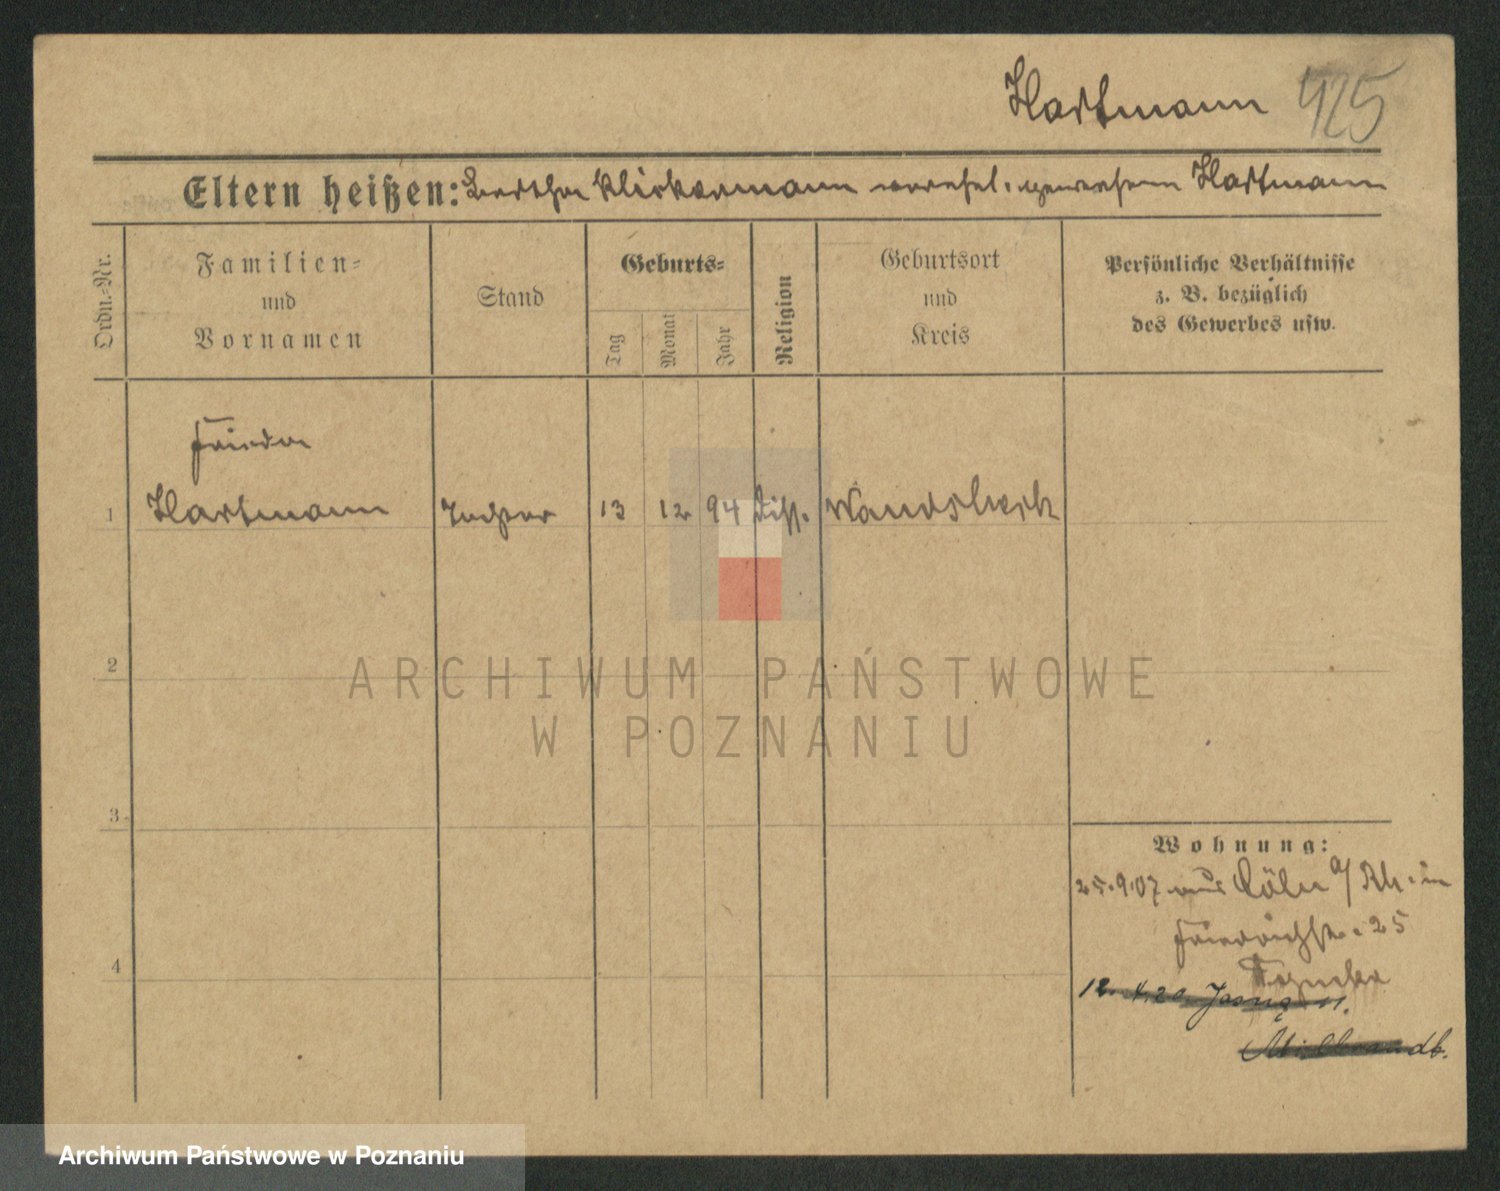 Hartmann 425
Eltern heißen: Bertha Klickermann verehel. gewesene Hartmann
Ordn.-Nr.
Familien-
und
Vornamen
Stand
Geburts-
Tag
Monat
Jahr
Religion
Geburtsort
und
Kreis
Persönliche Verhältnisse
z. B. bezüglich
des Gewerbes usw.
Frieda
1 Hartmann Tochter 13 12 94 Diss. Wandsbeck
2
3
4
Wohnung:
25.9.07 aus Cöln a/Rh. in
Friedrichstr. 25
12.4.20 Jasna 11.
Millbrandt.
ARCHIWUM PAŃSTWOWE
W POZNANIU
Archiwum Państwowe w Poznaniu